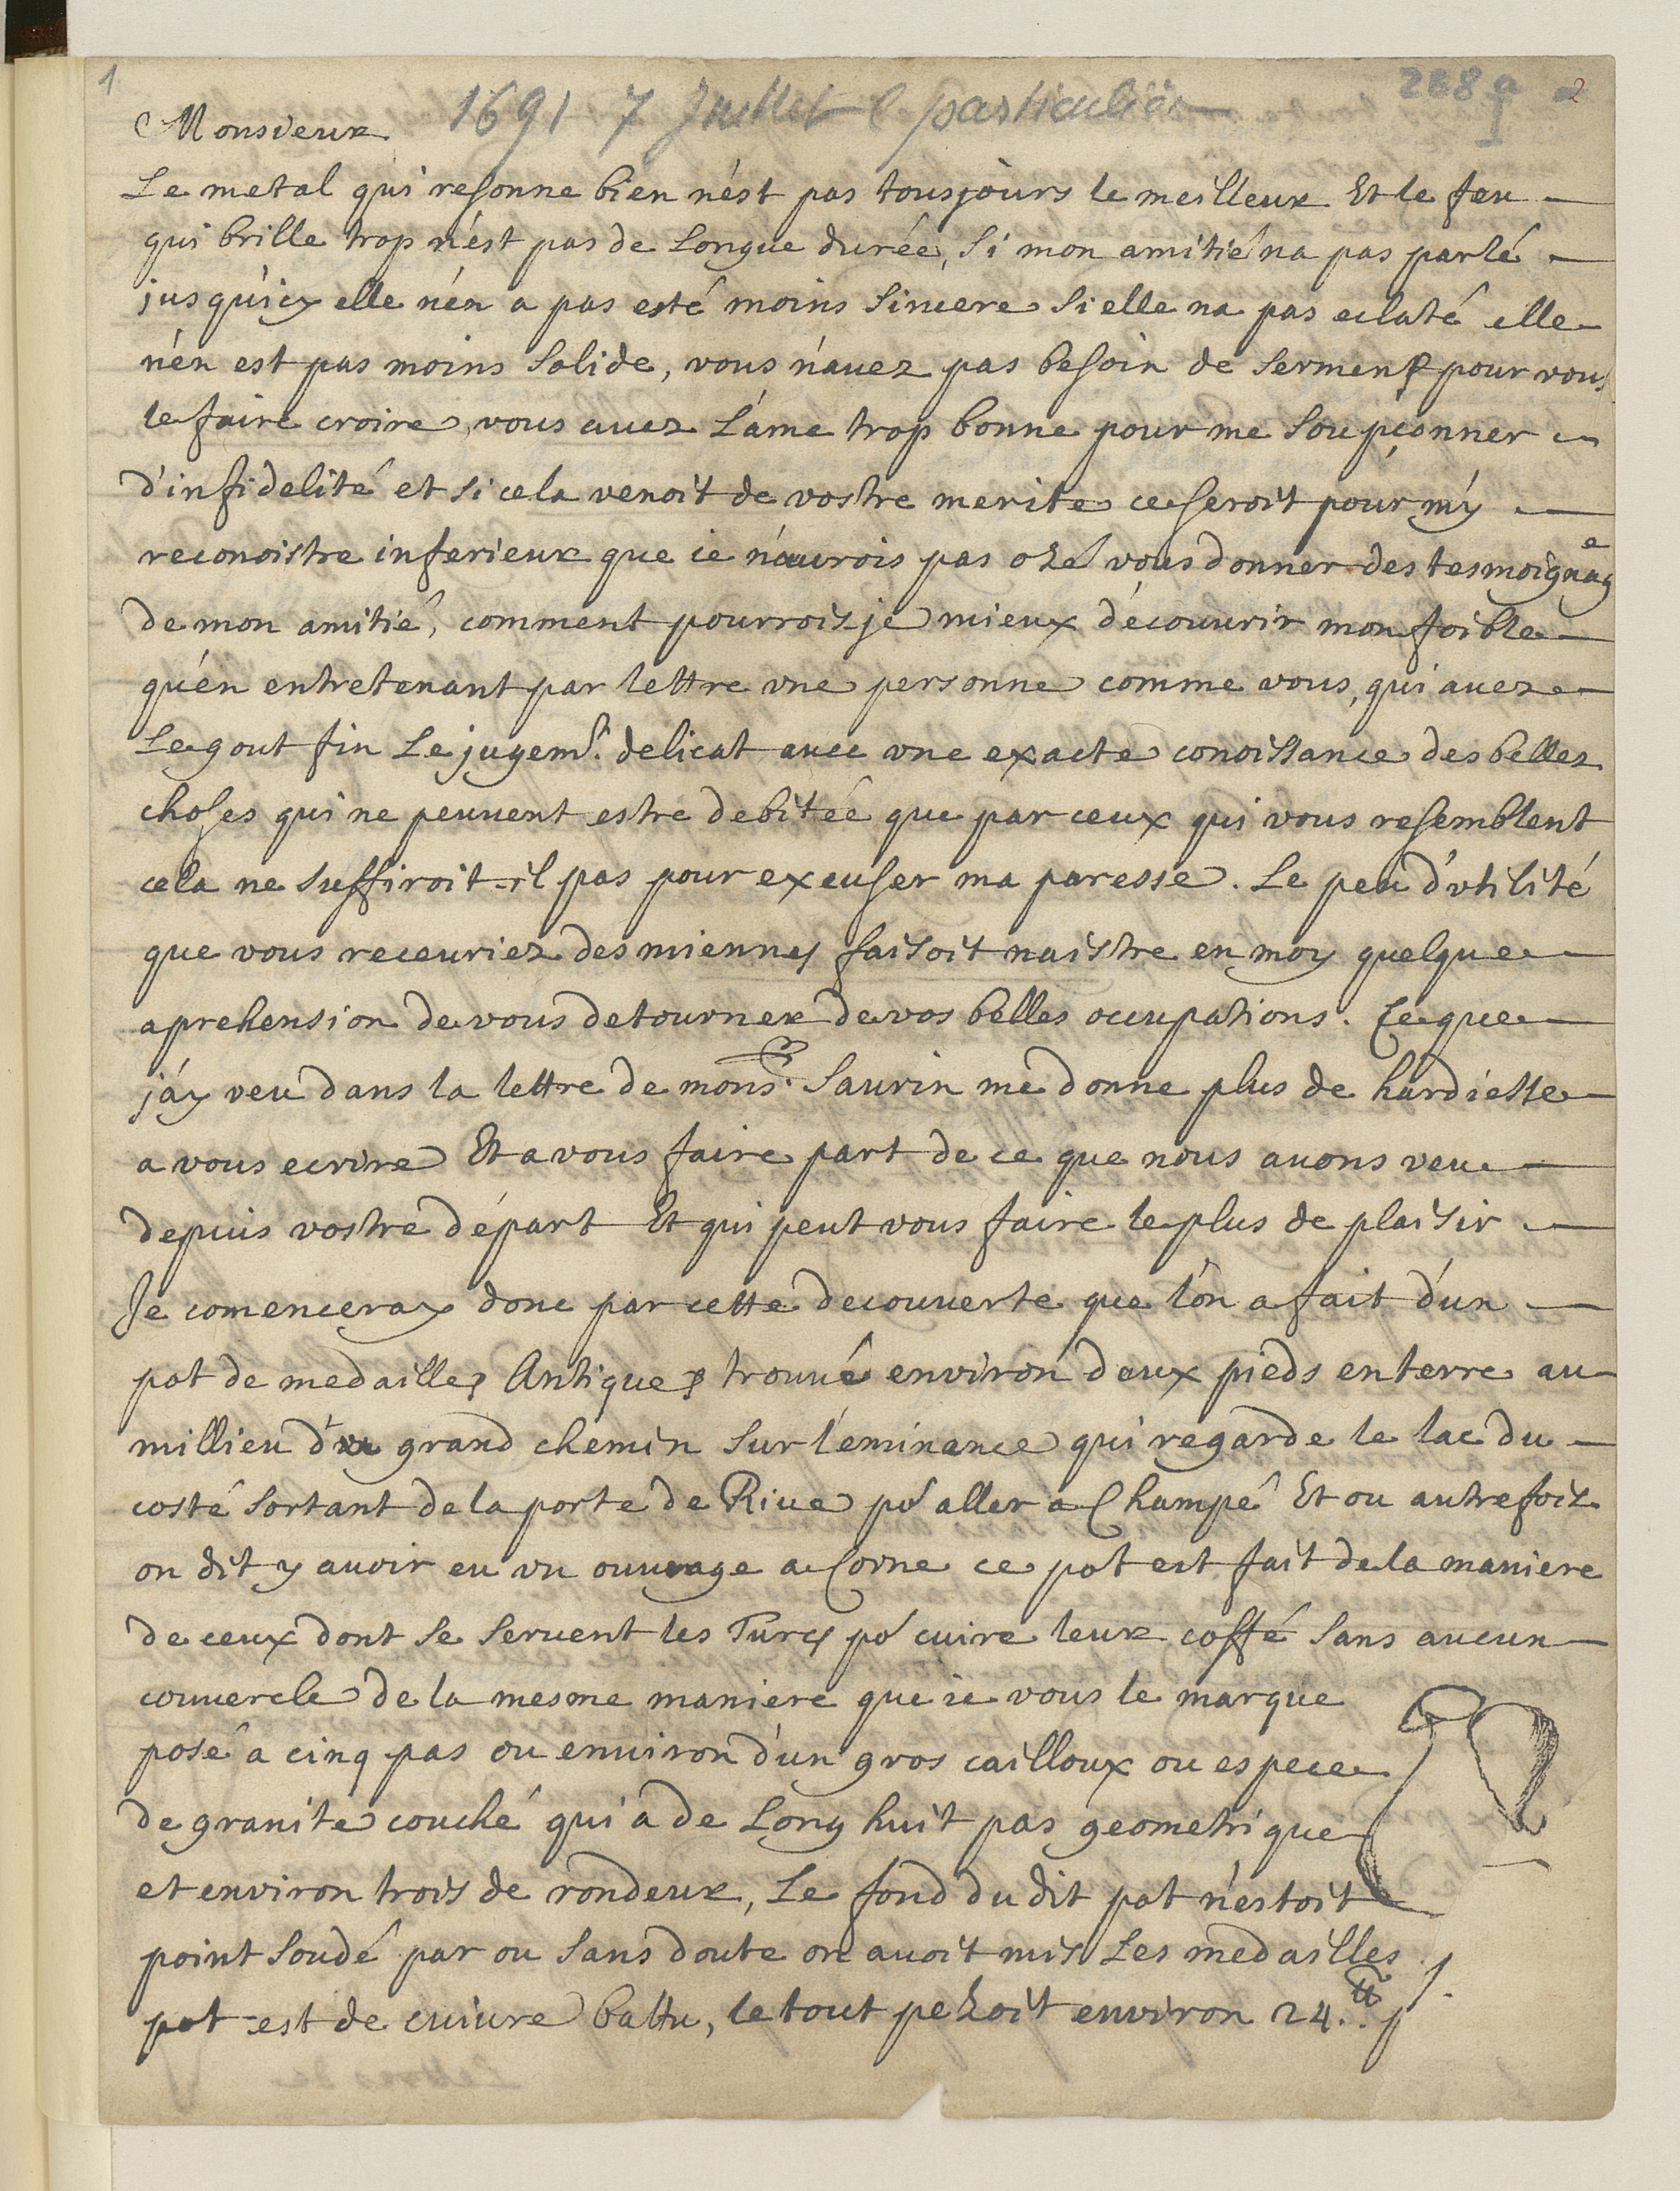 1
1691 7 Juillet particulier
268 a 2
Monsieur
Le metal qui resonne bien n'est pas tousjours le meilleur Et le feu
qui brille trop n'est pas de Longue durée, Si mon amitié na pas parlé
jusqu'icy elle n'en a pas esté moins Sincere Si elle na pas eclaté elle
n'en est pas moins Solide, vous n'avez pas besoin de Serment pour vous
le faire croire, vous avez L'ame trop bonne pour me Soupçonner
d'infidelité et Si cela venoit de vostre merite ce seroit pour m'y
reconoistre inferieur que ie n'aurois pas ozé vous donner des tesmoignag e
de mon amitié, comment pourrois je mieux découurir mon foible
qu'en entretenant par lettre vne personne comme vous, qui auez
Le gout fin Le jugemt. delicat auec vne exacte conoissance des belles
choses qui ne peuuent estre debitée que par ceux qui vous resemblent
cela ne Suffiroit-il pas pour excuser ma paresse. Le peu d'vtilité
que vous receuriez des miennes faisoit naistre en moy quelque
aprehension de vous detourner de vos belles occupations. Ce que
j'ay veu dans la lettre de monsr. Saurin me donne plus de hardiesse
a vous ecrire Et a vous faire part de ce que nous auons veu
depuis vostre départ Et qui peut vous faire le plus de plaisir
Je comenceray donc par cette decouuerte que l'on a fait d'un
pot de medailles Antiques trouué environ deux pieds en terre au
millieu d'vn grand chemin Sur l'eminance qui regarde le lac du
costé Sortant de la porte de Riue po' aller a Champé Et ou autrefois
on dit y auoir eu vn ouurage a Corne ce pot est fait de la maniere
de ceux dont Se Seruent les Turcs po' cuire leur coffé Sans aucun
couuercle de la mesme maniere que ie vous le marque
posé a cinq pas ou enuiron d'un gros cailloux ou espece
de granite couché qui a de Long huit pas geometrique
et environ trois de rondeur, Le fond du dit pot n'estoit
point Soudé par ou Sans doute on auoit mis Les medailles
pot est de cuivre battu, le tout pezoit environ 24.